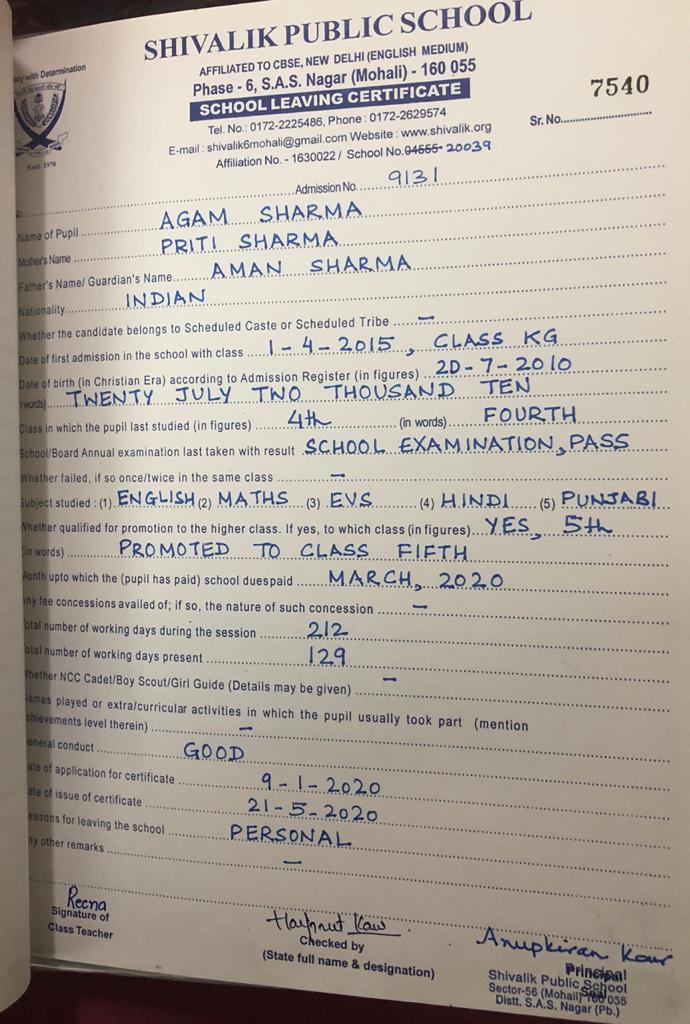 SHIVALIK PUBLIC SCHOOL
AFFILIATED TO CBSE, NEW DELHI (ENGLISH MEDIUM)
Phase - 6, S.A.S. Nagar (Mohali) - 160 055
SCHOOL LEAVING CERTIFICATE
Tel. No.: 0172-2225486, Phone : 0172-2629574
E-mail : shivalik6mohali@gmail.com Website : www.shivalik.org
Affiliation No. - 1630022 / School No. 04555 20039
with Determination
Estd. 1970
7540
Sr. No.
Admission No. 9131
Name of Pupil AGAM SHARMA
Mother's Name PRITI SHARMA
Father's Name/ Guardian's Name AMAN SHARMA
Nationality INDIAN
Whether the candidate belongs to Scheduled Caste or Scheduled Tribe —
Date of first admission in the school with class 1-4-2015, CLASS KG
Date of birth (in Christian Era) according to Admission Register (in figures) 20-7-2010
words) TWENTY JULY TWO THOUSAND TEN
Class in which the pupil last studied (in figures) 4th (in words) FOURTH
School/Board Annual examination last taken with result SCHOOL EXAMINATION, PASS
Whether failed, if so once/twice in the same class —
Subject studied : (1) ENGLISH (2) MATHS (3) EVS (4) HINDI (5) PUNJABI
Whether qualified for promotion to the higher class. If yes, to which class (in figures) YES, 5th
(in words) PROMOTED TO CLASS FIFTH
Month upto which the (pupil has paid) school duespaid MARCH, 2020
ny fee concessions availed of; if so, the nature of such concession —
otal number of working days during the session 212
otal number of working days present 129
hether NCC Cadet/Boy Scout/Girl Guide (Details may be given) —
ames played or extra/curricular activities in which the pupil usually took part (mention
chievements level therein) —
eneral conduct GOOD
ate of application for certificate 9-1-2020
ate of issue of certificate 21-5-2020
easons for leaving the school PERSONAL
ny other remarks —
Reena
Signature of
Class Teacher
Kaur
Checked by
(State full name & designation)
Anupkiran Kaur
Principal
Seal
Shivalik Public School
Sector-56 (Mohali) 160 055
Distt. S.A.S. Nagar (Pb.)